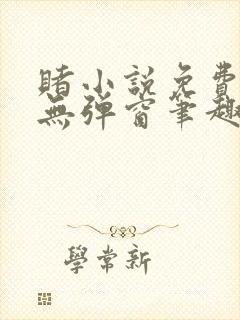 賭小說免費
無彈窗筆趣
學常新